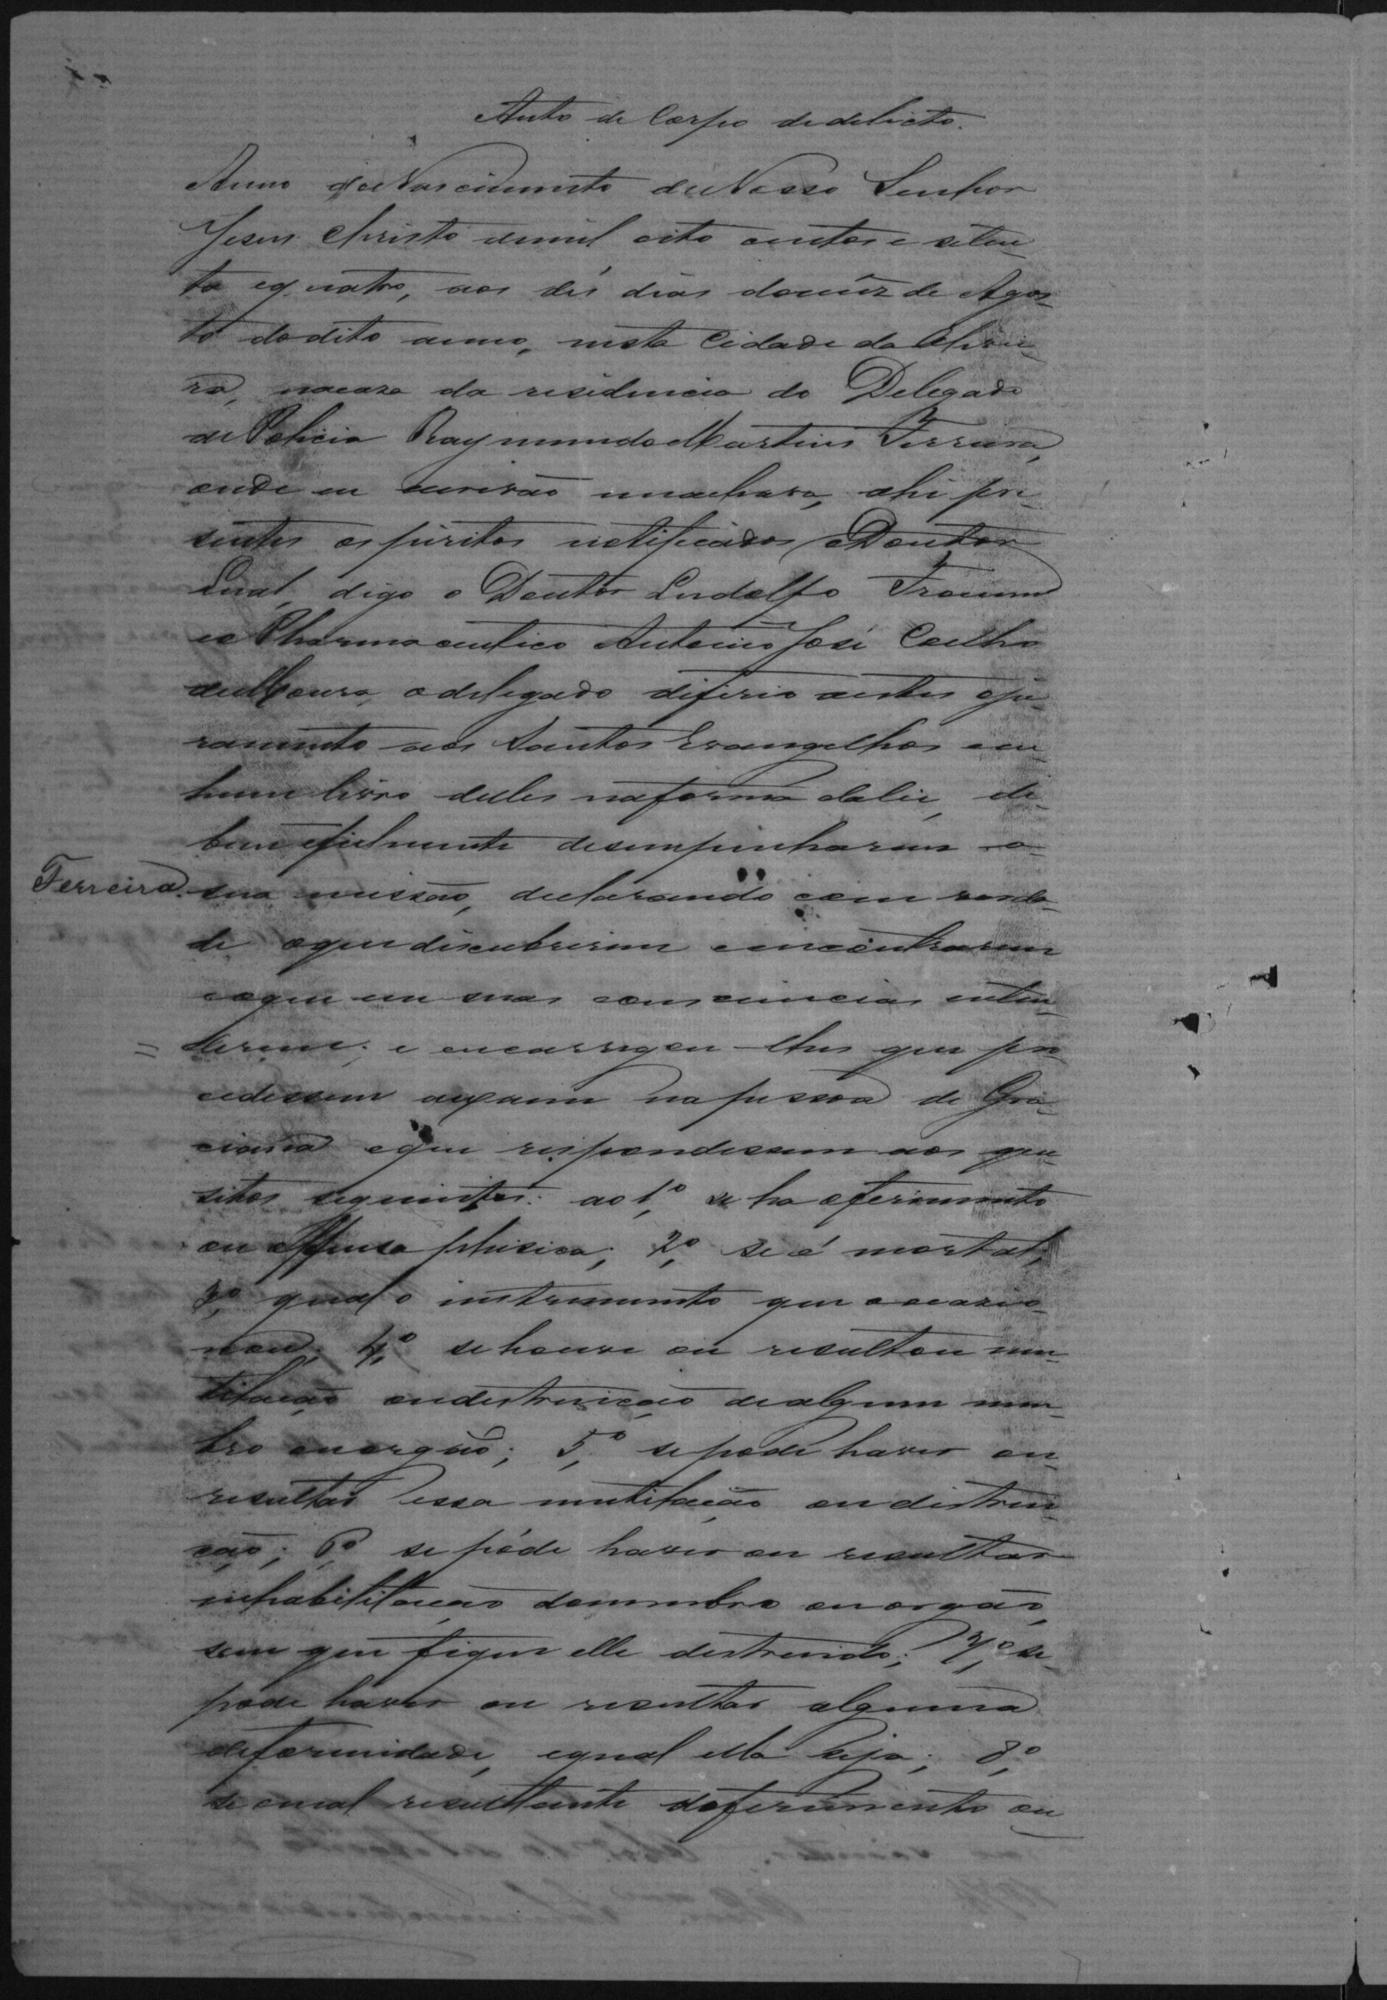 Auto de Corpo dedelicto.
Anno doNascimento deNosso Senhor
Jesus Christo demil oito centos e seten-
ta equatro, aos dés dias domêz de Agos-
to dodito anno, nesta Cidade da
ra, nacaza da residencia do Delegado
dePolicia RaymundoMartins Ferreira,
onde eu escrivão meachava, ahi pre-
sentes os piritos notificados oDoutor
digo o Doutor Lindolfo
eo Pharmaceutico AntonioJosé Coelho
deMoura, odelegado diferio aestes oju-
ramento aos Santos Evangelhos em
hum livro delles naforma dalei, de
bem efielmente desempenharem a
Ferreira. sua missão, declarando com verda-
de oquediscubrirem eencontrarem
eoque em suas consciencias enten-
= derem; e encarregou-lhes que pro-
cedessem aexame napessoa de Gra-
ciana eque respondessem aos que-
sitos seguintes: ao 1º, se ha oferimento
ou offensa phisica; 2º, se é mortal;
3º, qual o instrumento que o ocazio-
nou; 4º, sehouve ou resultou mu-
tilação oudestruição dealgum mem-
bro ouorgão; 5º, sepode haver ou
resultar essa mutilação oudistrui-
ção; 6º se póde haver ou resultar
inhabilitação domembro ouorgão,
sem que fique elle destruido; 7º, se
pode haver ou resultar alguma
deformidade, equal ella seja; 8º,
se omal resultante doferimento ou